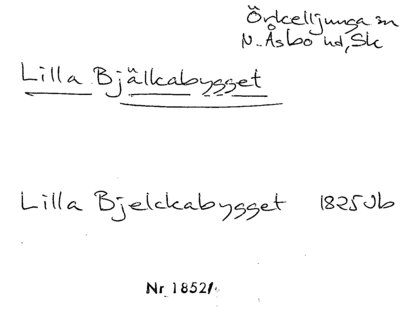 Örkelljunga sn
N. Åsbo hd, Sk
Lilla Bjälkabygget
Lilla Bjelckabygget 1825 Jb
Nr 1852/